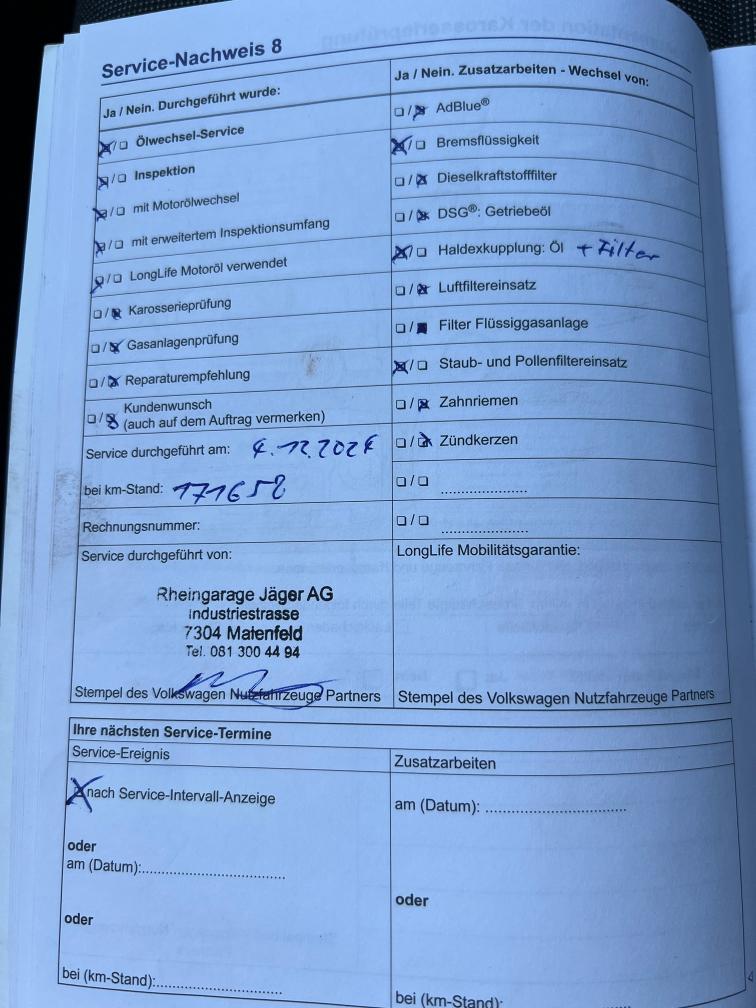 Service-Nachweis 8
Ja / Nein. Durchgeführt wurde:
☒/☐ Ölwechsel-Service
☒/☐ Inspektion
☒/☐ mit Motorölwechsel
☒/☐ mit erweitertem Inspektionsumfang
☒/☐ LongLife Motoröl verwendet
☐/☒ Karosserieprüfung
☐/☒ Gasanlagenprüfung
☐/☒ Reparaturempfehlung
☐/☒ Kundenwunsch
(auch auf dem Auftrag vermerken)
Service durchgeführt am: 4.12.2024
bei km-Stand: 171652
Rechnungsnummer:
Service durchgeführt von:
Rheingarage Jäger AG
Industriestrasse
7304 Maienfeld
Tel. 081 300 44 94
Stempel des Volkswagen Nutzfahrzeuge Partners
Ja / Nein. Zusatzarbeiten - Wechsel von:
☐/☒ AdBlue®
☒/☐ Bremsflüssigkeit
☐/☒ Dieselkraftstofffilter
☐/☒ DSG®: Getriebeöl
☒/☐ Haldexkupplung: Öl + Filter
☐/☒ Luftfiltereinsatz
☐/☒ Filter Flüssiggasanlage
☒/☐ Staub- und Pollenfiltereinsatz
☐/☒ Zahnriemen
☐/☒ Zündkerzen
☐/☐ ........................
☐/☐ ........................
LongLife Mobilitätsgarantie:
Stempel des Volkswagen Nutzfahrzeuge Partners
Ihre nächsten Service-Termine
Service-Ereignis
☒ nach Service-Intervall-Anzeige
oder
am (Datum):........................
oder
bei (km-Stand):........................
Zusatzarbeiten
am (Datum): ........................
oder
bei (km-Stand):